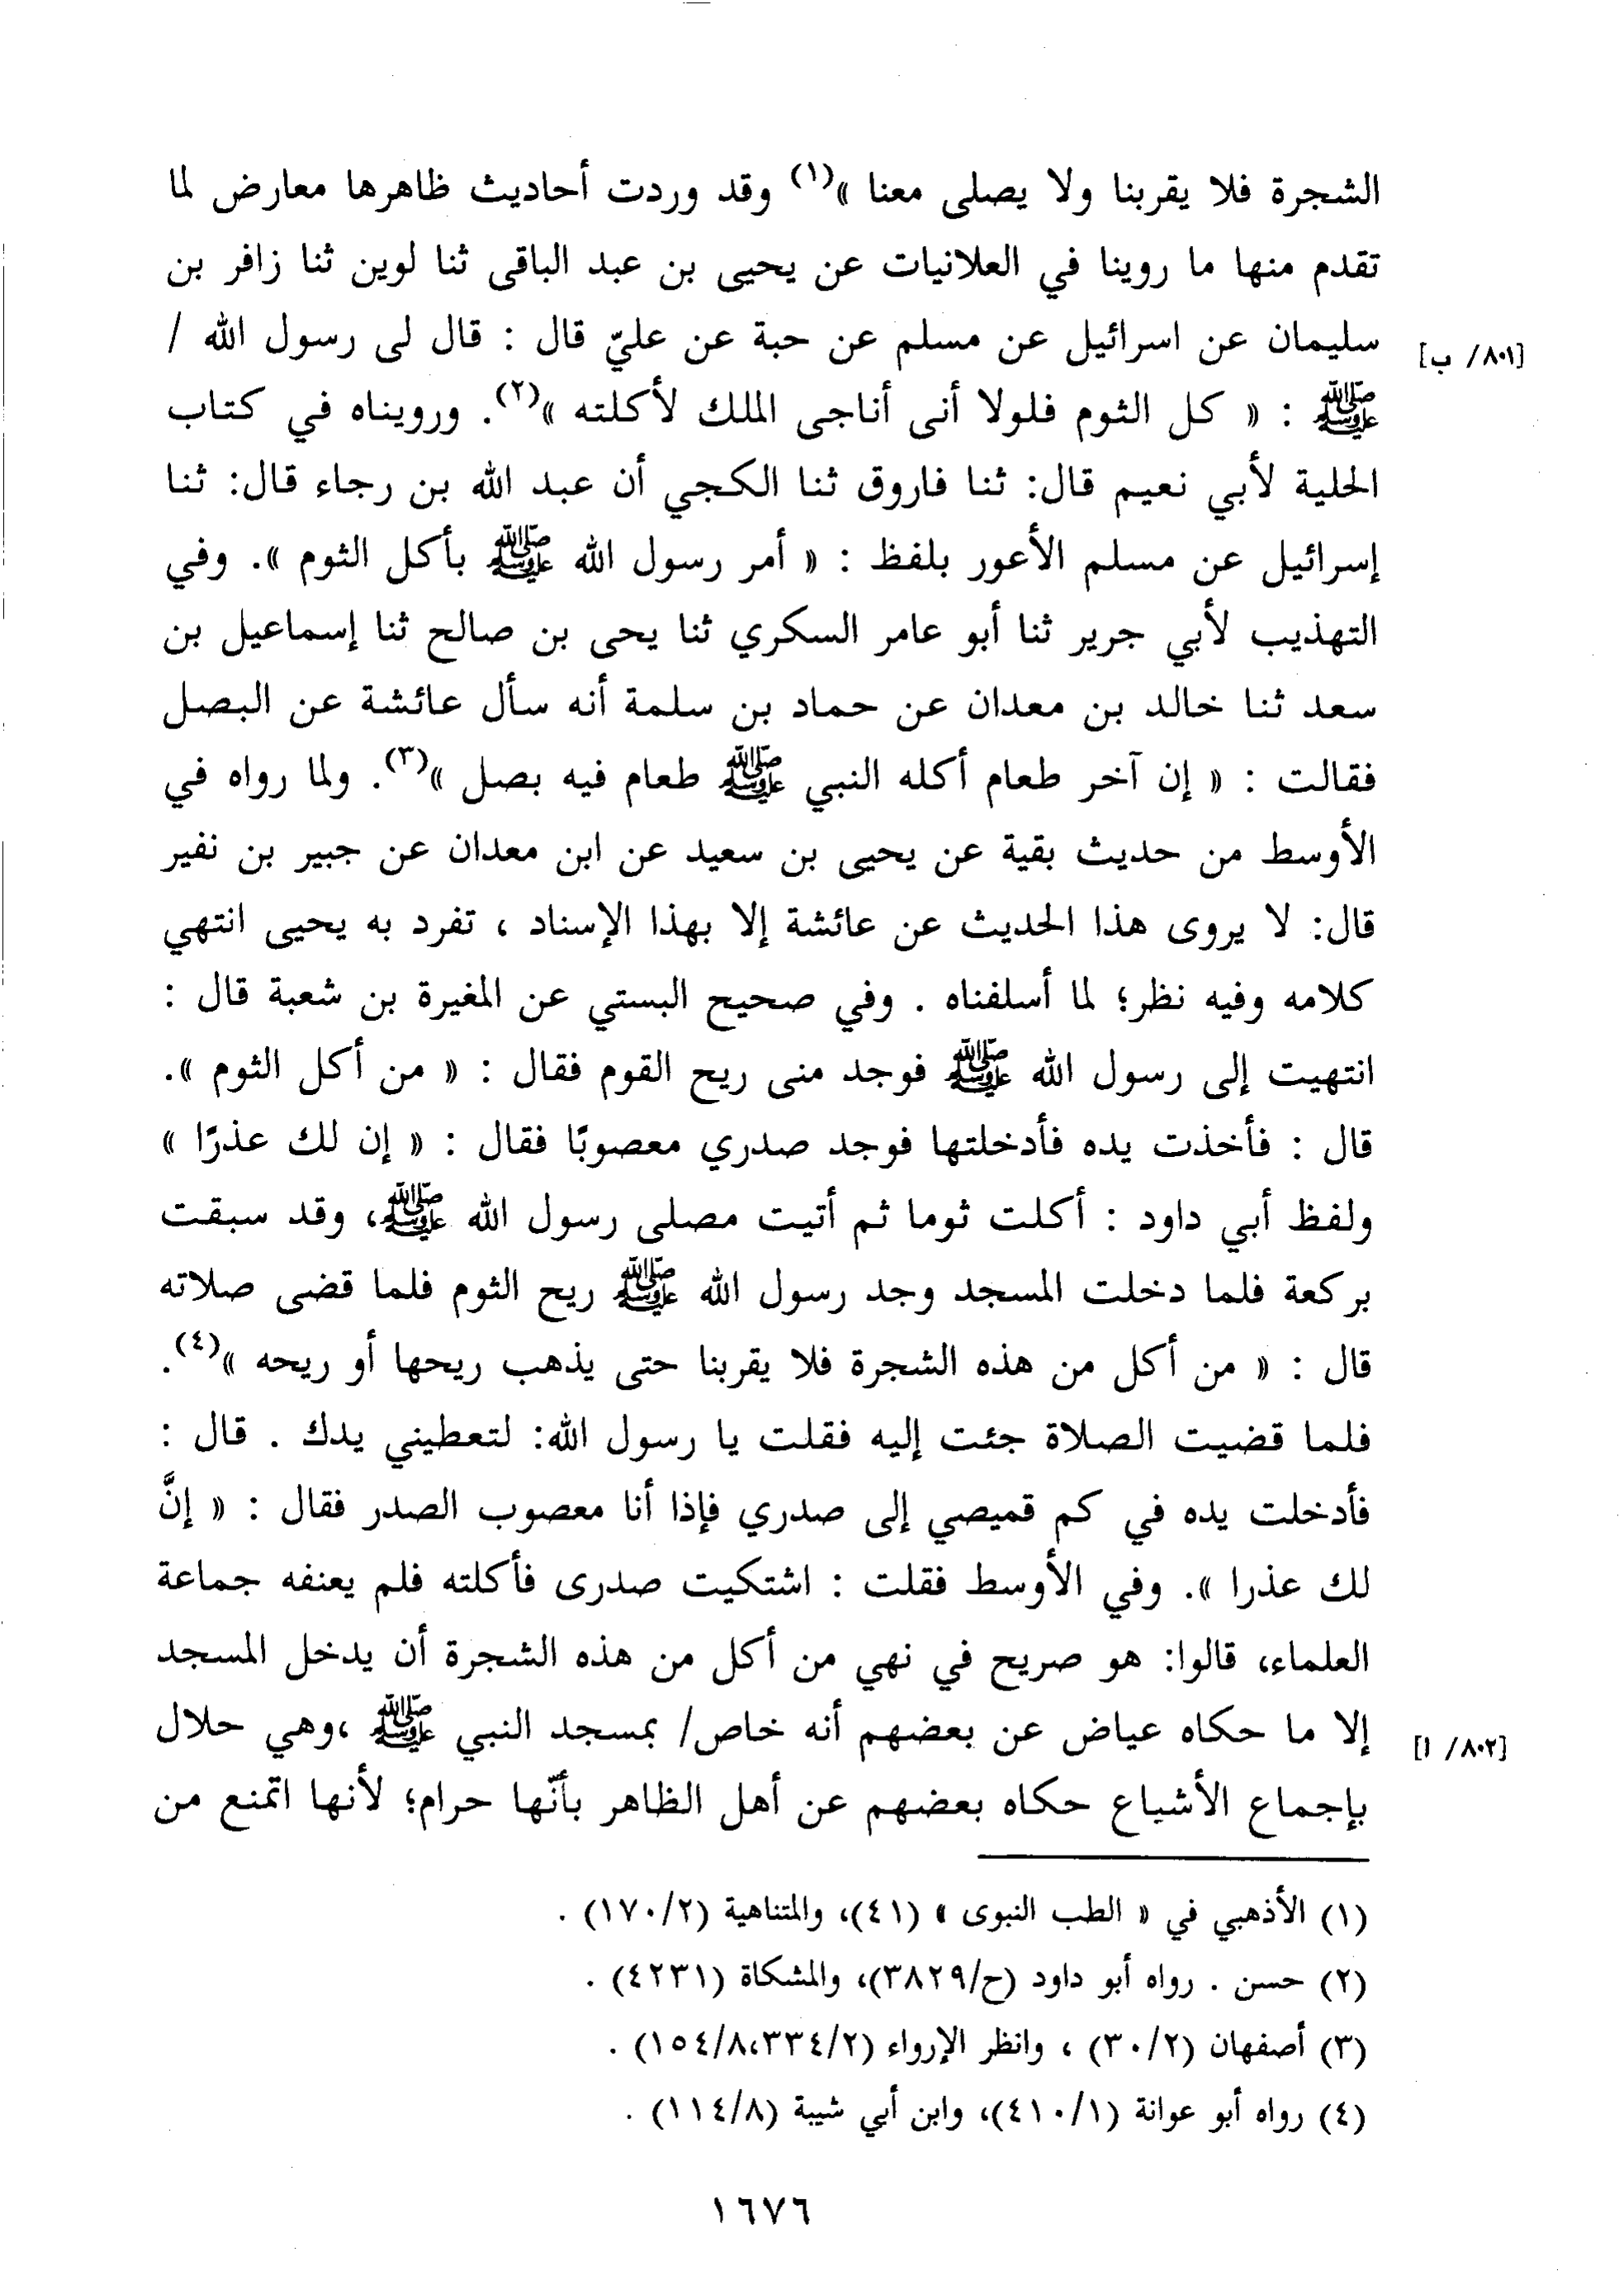 الشجرة فلا يقربنا ولا يصلى معنا »(١) وقد وردت أحاديث ظاهرها معارض لما
تقدم منها ما روينا في العلانيات عن يحيى بن عبد الباقى ثنا لوين ثنا زافر بن
سليمان عن اسرائيل عن مسلم عن حبة عن عليّ قال : قال لى رسول الله /
[٨٠١/ ب]
ﷺ : « كل الثوم فلولا أنى أناجى الملك لأكلته »(٢). ورويناه في كتاب
الحلية لأبي نعيم قال: ثنا فاروق ثنا الكجي أن عبد الله بن رجاء قال: ثنا
إسرائيل عن مسلم الأعور بلفظ : « أمر رسول الله ﷺ بأكل الثوم ». وفي
التهذيب لأبي جرير ثنا أبو عامر السكري ثنا يحى بن صالح ثنا إسماعيل بن
سعد ثنا خالد بن معدان عن حماد بن سلمة أنه سأل عائشة عن البصل
فقالت : « إن آخر طعام أكله النبي ﷺ طعام فيه بصل »(٣). ولما رواه في
الأوسط من حديث بقية عن يحيى بن سعيد عن ابن معدان عن جبير بن نفير
قال: لا يروى هذا الحديث عن عائشة إلا بهذا الإسناد ، تفرد به يحيى انتهي
كلامه وفيه نظر؛ لما أسلفناه . وفي صحيح البستي عن المغيرة بن شعبة قال :
انتهيت إلى رسول الله ﷺ فوجد منى ريح القوم فقال : « من أكل الثوم ».
قال : فأخذت يده فأدخلتها فوجد صدري معصوبًا فقال : « إن لك عذرًا »
ولفظ أبي داود : أكلت ثوما ثم أتيت مصلى رسول الله ﷺ، وقد سبقت
بركعة فلما دخلت المسجد وجد رسول الله ﷺ ريح الثوم فلما قضى صلاته
قال : « من أكل من هذه الشجرة فلا يقربنا حتى يذهب ريحها أو ريحه »(٤).
فلما قضيت الصلاة جئت إليه فقلت يا رسول الله: لتعطيني يدك . قال :
فأدخلت يده في كم قميصي إلى صدري فإذا أنا معصوب الصدر فقال : « إنَّ
لك عذرا ». وفي الأوسط فقلت : اشتكيت صدرى فأكلته فلم يعنفه جماعة
العلماء، قالوا: هو صريح في نهي من أكل من هذه الشجرة أن يدخل المسجد
إلا ما حكاه عياض عن بعضهم أنه خاص/ بمسجد النبي ﷺ ،وهي حلال
[٨٠٢/ ا]
بإجماع الأشياع حكاه بعضهم عن أهل الظاهر بأنّها حرام؛ لأنها اتمنع من
(١) الأذهبي في « الطب النبوى » (٤١)، والمتناهية (١٧٠/٢) .
(٢) حسن . رواه أبو داود (ح/٣٨٢٩)، والمشكاة (٤٢٣١) .
(٣) أصفهان (٣٠/٢) ، وانظر الإرواء (١٥٤/٨،٣٣٤/٢) .
(٤) رواه أبو عوانة (٤١٠/١)، وابن أبي شيبة (١١٤/٨) .
١٦٧٦